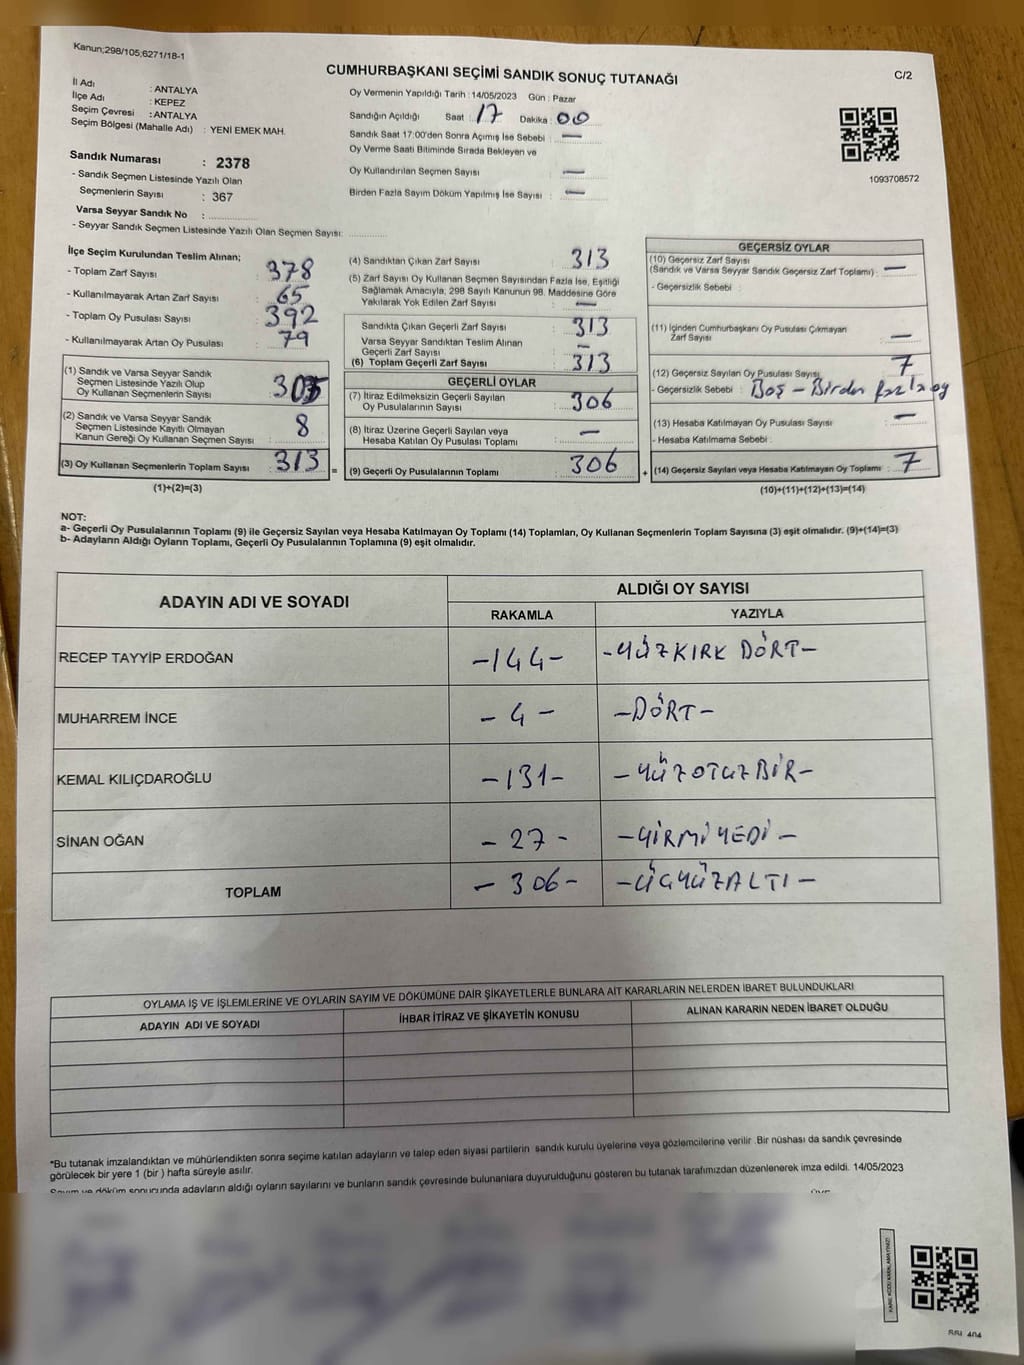 Kanun;298/105,6271/18-1
CUMHURBAŞKANI SEÇİMİ SANDIK SONUÇ TUTANAĞI
C/2
İl Adı : ANTALYA
İlçe Adı : KEPEZ
Seçim Çevresi : ANTALYA
Seçim Bölgesi (Mahalle Adı) : YENİ EMEK MAH.
Sandık Numarası : 2378
- Sandık Seçmen Listesinde Yazılı Olan
Seçmenlerin Sayısı : 367
Varsa Seyyar Sandık No :
- Seyyar Sandık Seçmen Listesinde Yazılı Olan Seçmen Sayısı:
Oy Vermenin Yapıldığı Tarih : 14/05/2023 Gün : Pazar
Sandığın Açıldığı Saat : 17 Dakika : 00
Sandık Saat 17:00'den Sonra Açımış İse Sebebi : —
Oy Verme Saati Bitiminde Sırada Bekleyen ve
Oy Kullandırılan Seçmen Sayısı : —
Birden Fazla Sayım Döküm Yapılmış İse Sayısı : —
1093708572
İlçe Seçim Kurulundan Teslim Alınan;
- Toplam Zarf Sayısı : 378
- Kullanılmayarak Artan Zarf Sayısı : 65
- Toplam Oy Pusulası Sayısı : 392
- Kullanılmayarak Artan Oy Pusulası : 79
(1) Sandık ve Varsa Seyyar Sandık
Seçmen Listesinde Yazılı Olup
Oy Kullanan Seçmenlerin Sayısı : 305
(2) Sandık ve Varsa Seyyar Sandık
Seçmen Listesinde Kayıtlı Olmayan
Kanun Gereği Oy Kullanan Seçmen Sayısı : 8
(3) Oy Kullanan Seçmenlerin Toplam Sayısı : 313 =
(1)+(2)=(3)
(4) Sandıktan Çıkan Zarf Sayısı : 313
(5) Zarf Sayısı Oy Kullanan Seçmen Sayısından Fazla İse, Eşitliği
Sağlamak Amacıyla, 298 Sayılı Kanunun 98. Maddesine Göre
Yakılarak Yok Edilen Zarf Sayısı : —
Sandıkta Çıkan Geçerli Zarf Sayısı : 313
Varsa Seyyar Sandıktan Teslim Alınan
Geçerli Zarf Sayısı : —
(6) Toplam Geçerli Zarf Sayısı : 313
GEÇERLİ OYLAR
(7) İtiraz Edilmeksizin Geçerli Sayılan
Oy Pusulalarının Sayısı : 306
(8) İtiraz Üzerine Geçerli Sayılan veya
Hesaba Katılan Oy Pusulası Toplamı : —
(9) Geçerli Oy Pusulalarının Toplamı : 306 +
GEÇERSİZ OYLAR
(10) Geçersiz Zarf Sayısı
(Sandık ve Varsa Seyyar Sandık Geçersiz Zarf Toplamı) : —
- Geçersizlik Sebebi :
(11) İçinden Cumhurbaşkanı Oy Pusulası Çıkmayan
Zarf Sayısı : —
(12) Geçersiz Sayılan Oy Pusulası Sayısı : 7
- Geçersizlik Sebebi : Boş – Birden fazla oy
(13) Hesaba Katılmayan Oy Pusulası Sayısı : —
- Hesaba Katılmama Sebebi :
(14) Geçersiz Sayılan veya Hesaba Katılmayan Oy Toplamı : 7
(10)+(11)+(12)+(13)=(14)
NOT:
a- Geçerli Oy Pusulalarının Toplamı (9) ile Geçersiz Sayılan veya Hesaba Katılmayan Oy Toplamı (14) Toplamları, Oy Kullanan Seçmenlerin Toplam Sayısına (3) eşit olmalıdır. (9)+(14)=(3)
b- Adayların Aldığı Oyların Toplamı, Geçerli Oy Pusulalarının Toplamına (9) eşit olmalıdır.
ADAYIN ADI VE SOYADI
ALDIĞI OY SAYISI
RAKAMLA YAZIYLA
RECEP TAYYİP ERDOĞAN -144- -YÜZKIRK DÖRT-
MUHARREM İNCE - 4 - -DÖRT-
KEMAL KILIÇDAROĞLU -131- -YÜZOTUZBİR-
SİNAN OĞAN - 27 - -YİRMİYEDİ-
TOPLAM - 306 - -ÜÇYÜZALTI-
OYLAMA İŞ VE İŞLEMLERİNE VE OYLARIN SAYIM VE DÖKÜMÜNE DAİR ŞİKAYETLERLE BUNLARA AİT KARARLARIN NELERDEN İBARET BULUNDUKLARI
ADAYIN ADI VE SOYADI İHBAR İTİRAZ VE ŞİKAYETİN KONUSU ALINAN KARARIN NEDEN İBARET OLDUĞU
*Bu tutanak imzalandıktan ve mühürlendikten sonra seçime katılan adayların ve talep eden siyasi partilerin sandık kurulu üyelerine veya gözlemcilerine verilir .Bir nüshası da sandık çevresinde
görülecek bir yere 1 (bir ) hafta süreyle asılır.
Sayım ve döküm sonucunda adayların aldığı oyların sayılarını ve bunların sandık çevresinde bulunanlara duyurulduğunu gösteren bu tutanak tarafımızdan düzenlenerek imza edildi. 14/05/2023
ÜYE